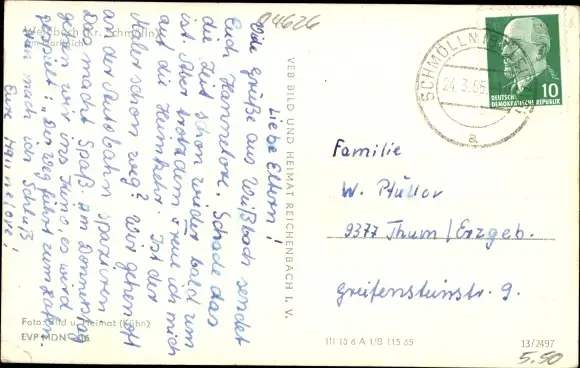 04626
Weißbach (Kr. Schmölln)
Am Dorfteich
Liebe Eltern!
Viele Grüße aus Weißbach sendet
Euch Hannelore. Schade das
die Zeit schon wieder bald um
ist. Aber trotzdem freue ich mich
auf die Heimkehr. Ist der
Maler schon weg? Wir gehen oft
an der Autobahn spazieren
Das macht Spaß. Am Donnerstag
gehen wir ins Kino, es wird
gespielt: „Der Weg führt zum Hafen.
nun mach ich Schluß
Eure Hannelore!
Foto: Bild u. Heimat (Kühn)
EVP MDN
VEB BILD UND HEIMAT REICHENBACH I. V.
SCHMÖLLN
24.3.66
a
DEUTSCHE
DEMOKRATISCHE REPUBLIK
10
Familie
W. Pfüller
9377 Thum/Erzgeb.
Greifensteinstr. 9.
III 18 6 A 1/B 115 65
13/2497
5.50